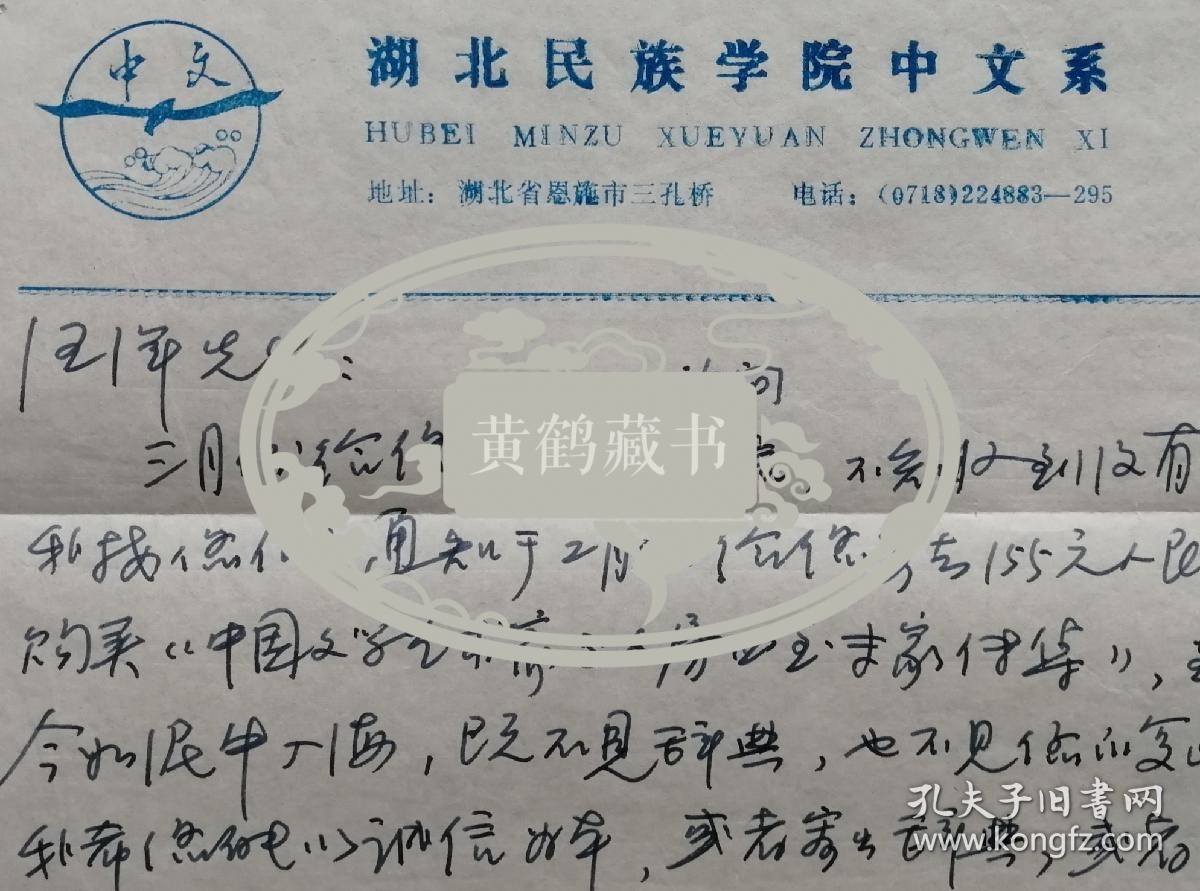 中文
湖北民族学院中文系
HUBEI MINZU XUEYUAN ZHONGWEN XI
地址：湖北省恩施市三孔桥 电话：(0718)224883—295
先生：
三月 给你 不知收到没有
我按您 通知于2月 给您 去155元人民
购买《中国文学艺术 家传集》，
今如泥牛入海，既不见辞典，也不见您的复
我希您 以诚信为本，或者寄出辞典，或者
黄鹤藏书
孔夫子旧书网
www.kongfz.com